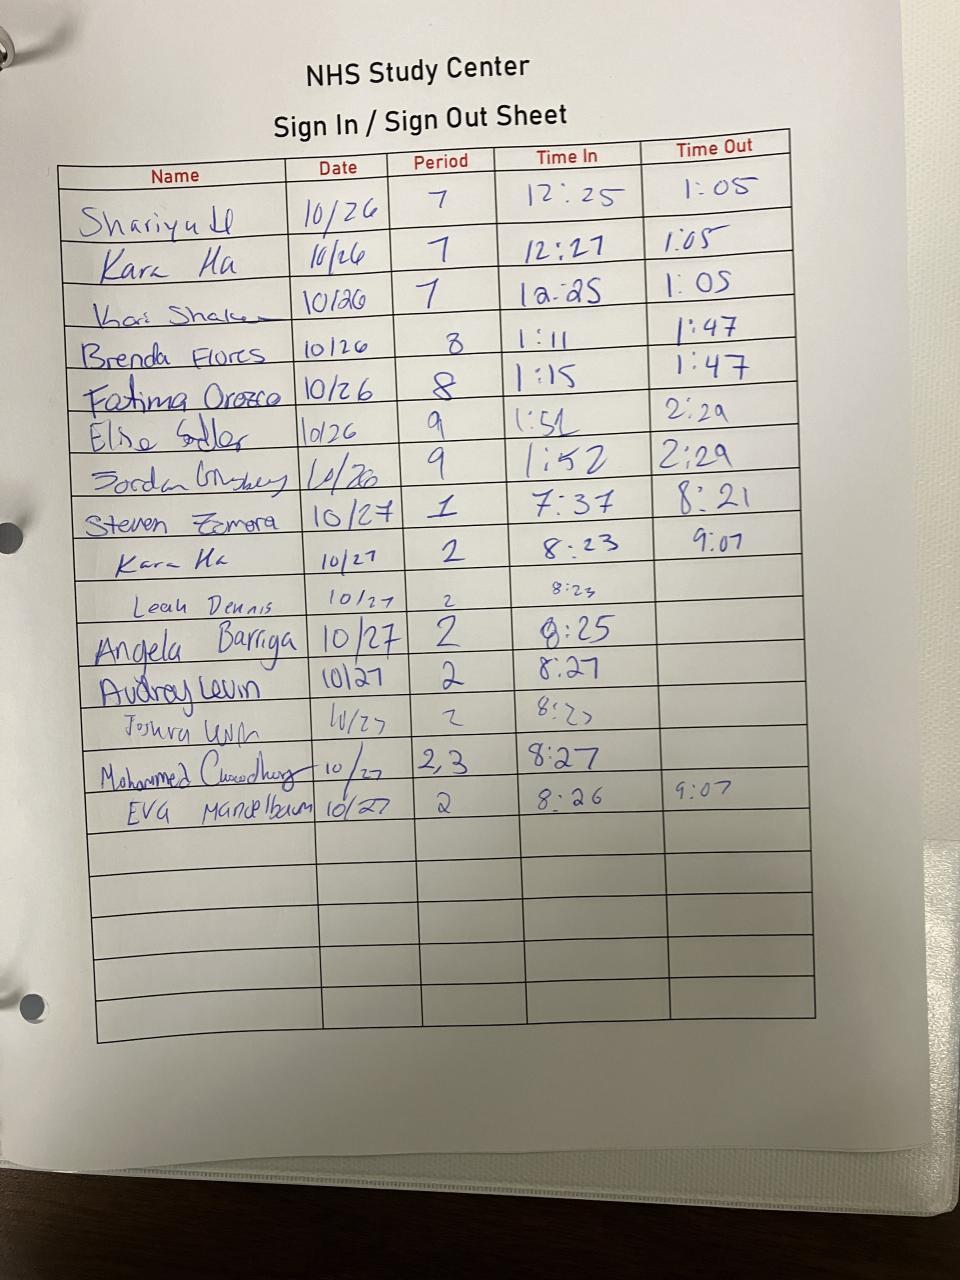 NHS Study Center
Sign In / Sign Out Sheet
Name Date Period Time In Time Out
10/26 7 12:25 1:05
Kara Ha 10/26 7 12:27 1:05
10/26 7 12:25 1:05
Brenda Flores 10/26 8 1:11 1:47
Fatima Orozco 10/26 8 1:15 1:47
Elise 10/26 9 1:51 2:29
Jordan 10/26 9 1:52 2:29
Steven Zamora 10/27 1 7:37 8:21
Kara Ha 10/27 2 8:23 9:07
Leah Dennis 10/27 2 8:23
Angela Barriga 10/27 2 8:25
Audrey Levin 10/27 2 8:27
Joshua 10/27 2 8:27
Mohammed Chowdhury 10/27 2,3 8:27
Eva Mandelbaum 10/27 2 8:26 9:07